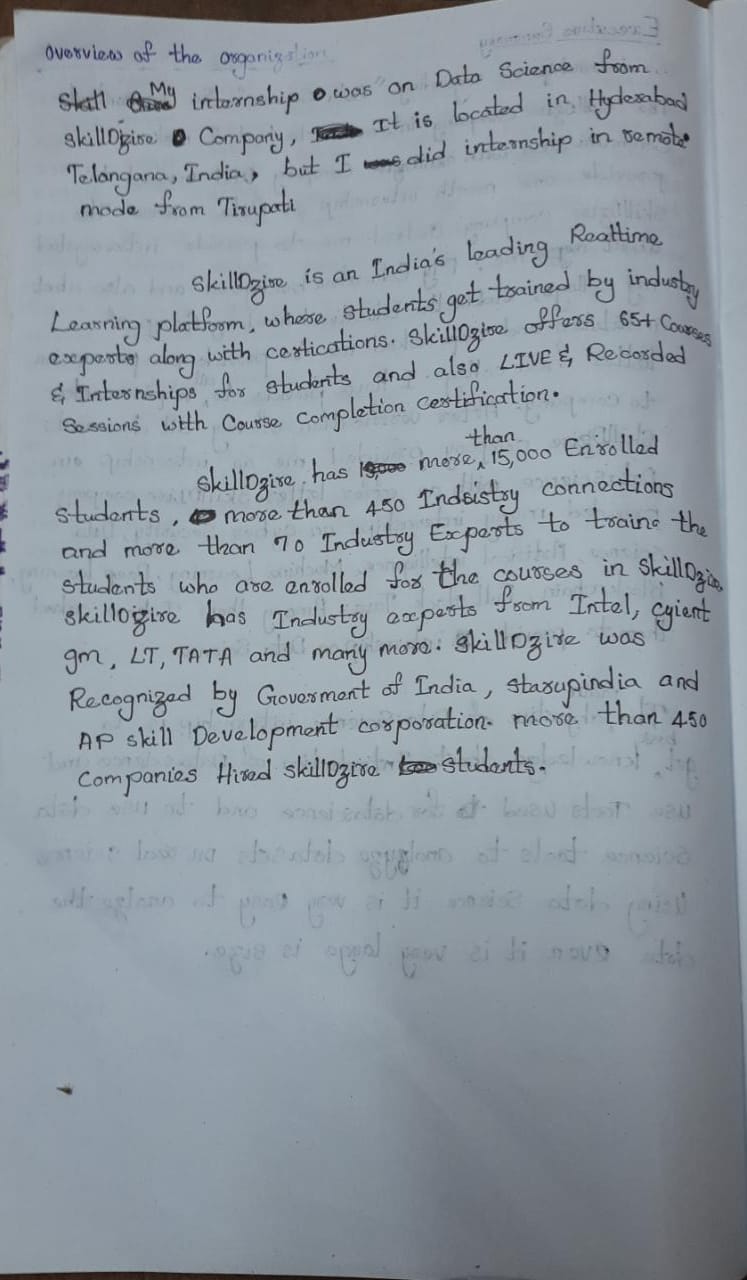 overview of the organization
My internship was on Data Science from
SkillDzire Company, It is located in Hyderabad
Telangana, India, but I did internship in remote
mode from Tirupati
SkillDzire is an India's leading Realtime
Learning platform, where students get trained by industry
experts along with certications. SkillDzire offers 65+ Courses
& Internships for students and also LIVE & Recorded
Sessions with Course Completion certification.
than
SkillDzire has more 15,000 Enrolled
students, more than 450 Indsistry connections
and more than 70 Industry Experts to traine the
students who are enrolled for the courses in SkillDzire
skillDzire has Industry experts from Intel, cyient
gm, LT, TATA and many more. SkillDzire was
Recognized by Goverment of India, starupindia and
AP skill Development corporation. more than 450
Companies Hired skillDzire students.